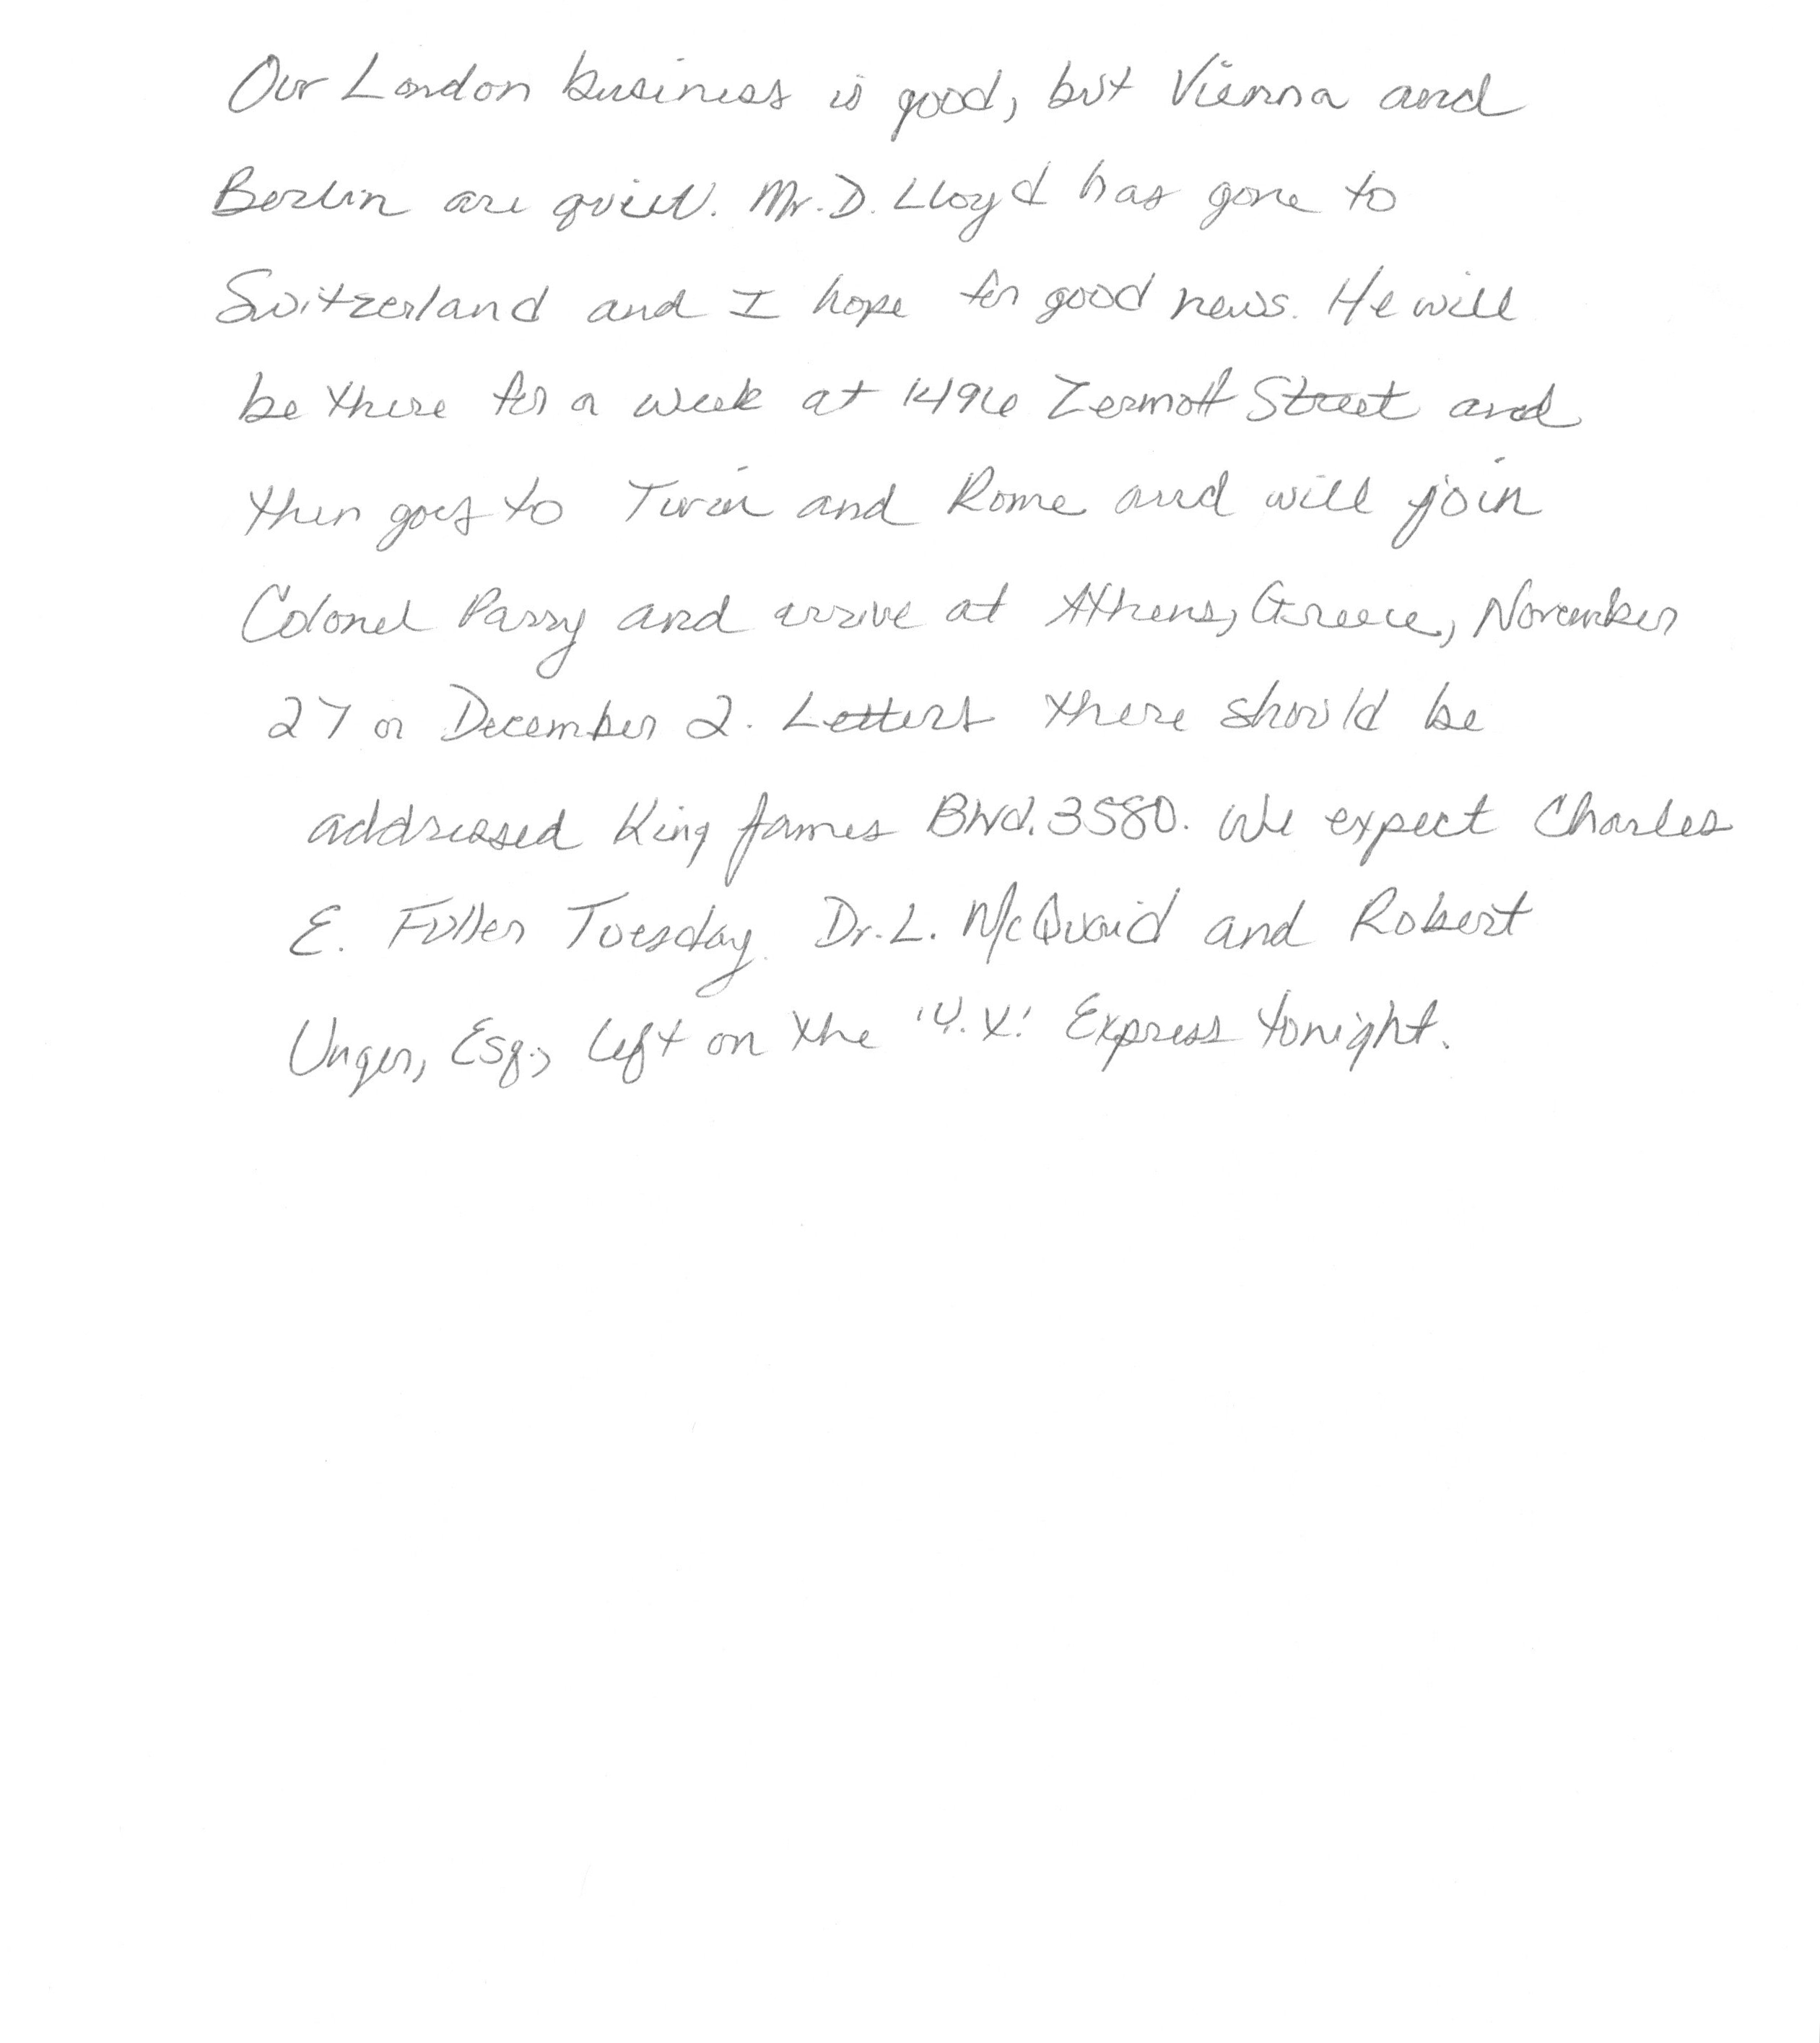 Our London business is good, but Vienna and
Berlin are quiet. Mr. D. Lloyd has gone to
Switzerland and I hope for good news. He will
be there for a week at 1496 Zermott Street and
then goes to Turin and Rome and will join
Colonel Parry and arrive at Athens, Greece, November
27 or December 2. Letters there should be
addressed King James Blvd. 3580. We expect Charles
E. Fuller Tuesday. Dr. L. McQuaid and Robert
Unger, Esq., left on the 'Y.X.' Express tonight.